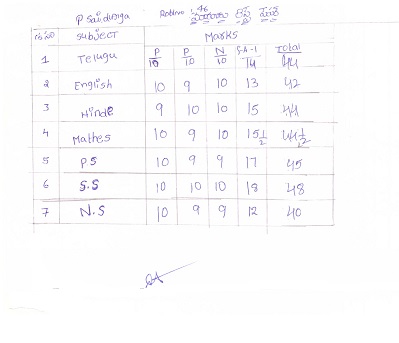 P Saidurga Rollno: 46
S.NO SUBJECT Marks
1 Telugu P/10 P/10 N/10 S.A-1/14 Total/44
2 English 10 9 10 13 42
3 Hinde 9 10 10 15 44
4 Mathes 10 9 10 15 1/2 44 1/2
5 PS 10 9 9 17 45
6 S.S 10 10 10 18 48
7 N.S 10 9 9 12 40